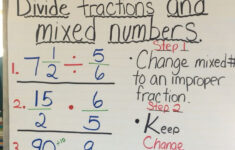 Divide fractions and
mixed numbers.
Step 1
1. 7 1/2 ÷ 5/6
• Change mixed #
to an improper
fraction.
Step 2
2. 15/2 • 6/5
• Keep
Change
3. 90